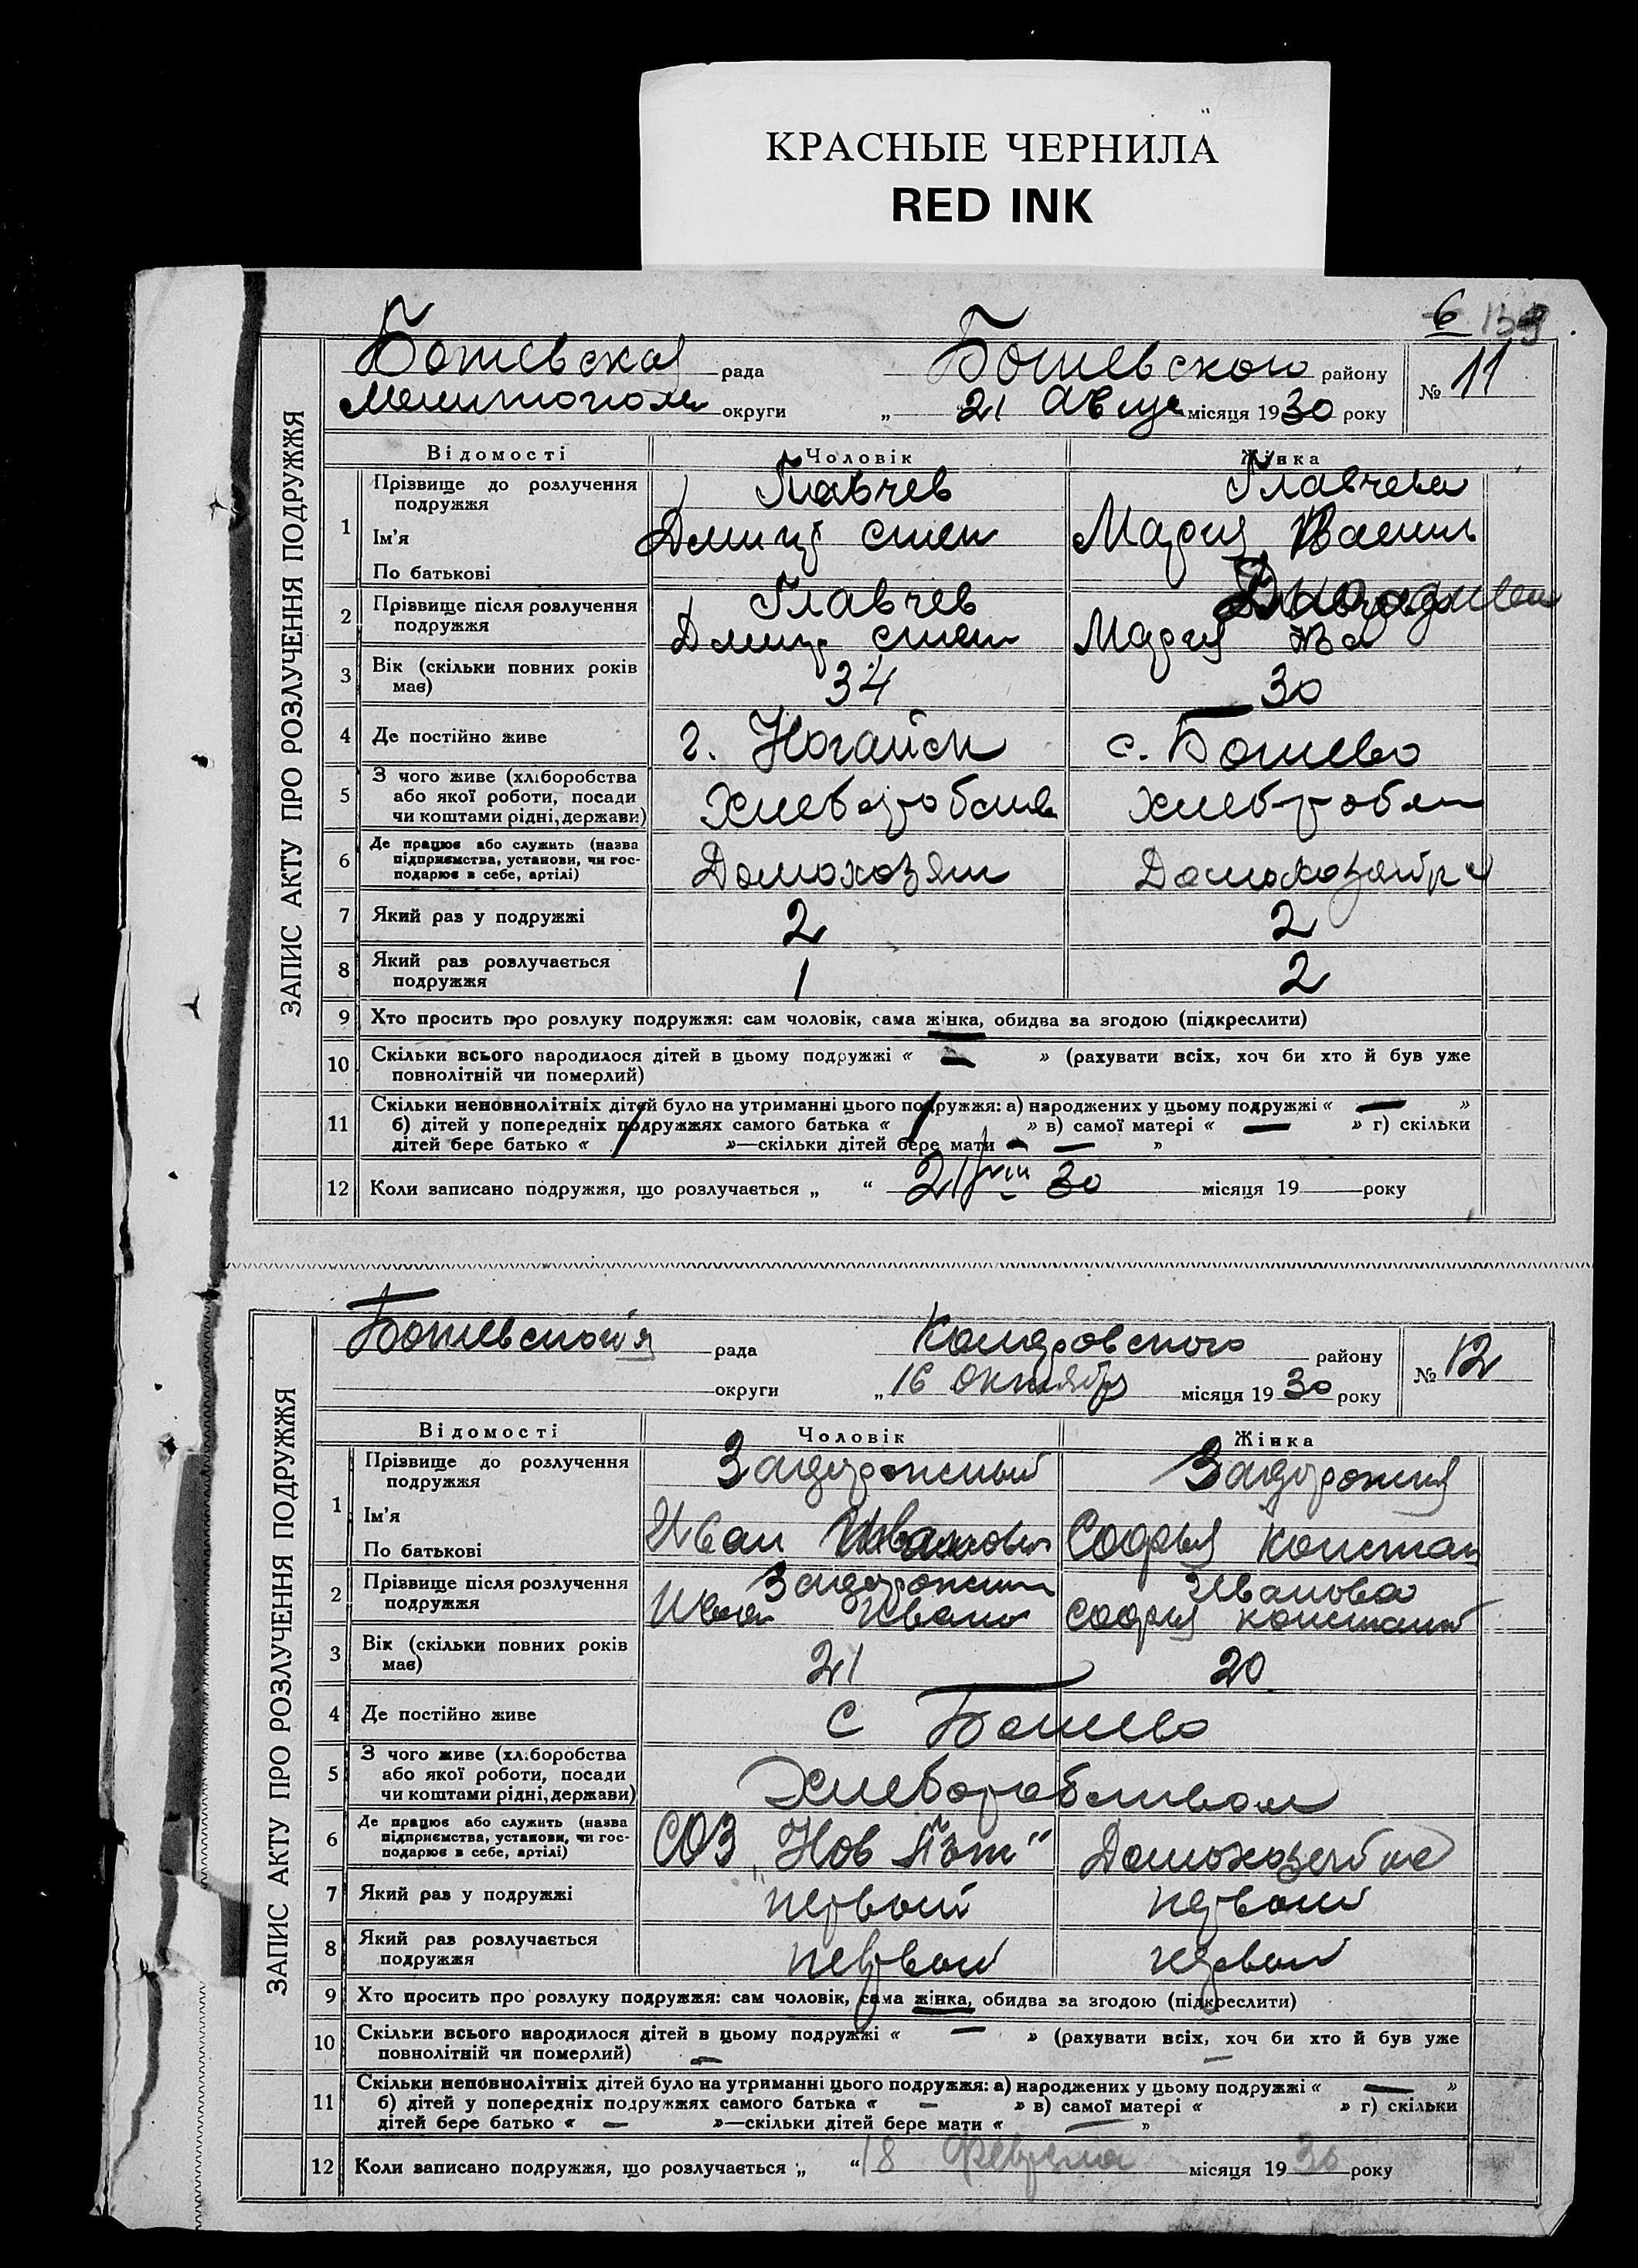 КРАСНЫЕ ЧЕРНИЛА
RED INK
6 139
ЗАПИС АКТУ ПРО РОЗЛУЧЕННЯ ПОДРУЖЖЯ
Ботевская рада Ботевского району № 11
Мелитополь округи „ 21 Авгус місяця 1930 року
Відомості Чоловік Жінка
1 Прізвище до розлучення подружжя Главчев Главчева
Ім'я Дмитр Степ Мария Васил
По батькові
2 Прізвище після розлучення подружжя Главчев
Дмитр степ Мария
3 Вік (скільки повних років має) 34 30
4 Де постійно живе г. Ногайск с. Ботево
5 З чого живе (хліборобства
або якої роботи, посади
чи коштами рідні, держави)
6 Де працює або служить (назва
підприємства, установи, чи гос-
подарює в себе, артілі) Домохозяин Домохозяйка
7 Який раз у подружжі 2 2
8 Який раз розлучається подружжя 1 2
9 Хто просить про розлуку подружжя: сам чоловік, сама жінка, обидва за згодою (підкреслити)
10 Скільки всього народилося дітей в цьому подружжі « — » (рахувати всіх, хоч би хто й був уже
повнолітній чи померлий)
11 Скільки неповнолітніх дітей було на утриманні цього подружжя: а) народжених у цьому подружжі « — »
б) дітей у попередніх подружжях самого батька « » в) самої матері « — » г) скільки
дітей бере батько « »—скільки дітей бере мати « — »
12 Коли записано подружжя, що розлучається „ “ 21/VIII 30 місяця 19 року
ЗАПИС АКТУ ПРО РОЗЛУЧЕННЯ ПОДРУЖЖЯ
рада району № 12
округи „ 16 октября місяця 1930 року
Відомості Чоловік Жінка
1 Прізвище до розлучення подружжя Задорожный Задорожня
Ім'я Иван Иванович Софья Констан
По батькові
2 Прізвище після розлучення подружжя Задорожный Иванова
Иван Ивано Софья констант
3 Вік (скільки повних років має) 21 20
4 Де постійно живе с Ботево
5 З чого живе (хліборобства
або якої роботи, посади
чи коштами рідні, держави) Хлеборобством
6 Де працює або служить (назва
підприємства, установи, чи гос-
подарює в себе, артілі) СОЗ „Нов Пут“ Домохозяйка
7 Який раз у подружжі первый первый
8 Який раз розлучається подружжя первый первый
9 Хто просить про розлуку подружжя: сам чоловік, сама жінка, обидва за згодою (підкреслити)
10 Скільки всього народилося дітей в цьому подружжі « — » (рахувати всіх, хоч би хто й був уже
повнолітній чи померлий)
11 Скільки неповнолітніх дітей було на утриманні цього подружжя: а) народжених у цьому подружжі « — »
б) дітей у попередніх подружжях самого батька « — » в) самої матері « » г) скільки
дітей бере батько « — »—скільки дітей бере мати « — »
12 Коли записано подружжя, що розлучається „ “ 18 Февраля місяця 1930 року